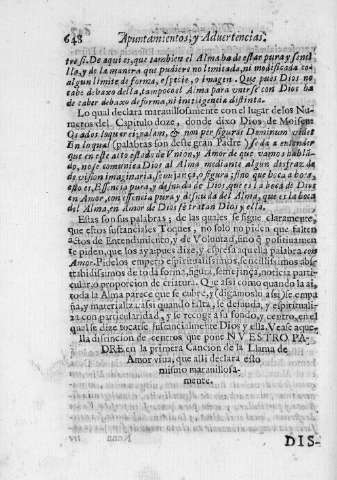 648 Apuntamientos, y Aduertencias.
tre si. De aqui es, que tambien el Alma ha de estar pura y senci
lla, y de la manera que pudiere no limitada, ni modificada co
algun limite de forma, especie, o imagen. Que pues Dios no
cabe debaxo della, tampoco el Alma para vnirse con Dios ha
de caber debaxo de forma, ni inteligencia distinta.
Lo qual declara marauillosamente con el lugar de los Nu-
meros del Capitulo doze, donde dixo Dios de Moisen:
Os ad os loquor ei palam, & non per figuras Dominum videt
En lo qual (palabras son deste gran Padre) se da a entender
que en este alto estado de Vnion, y Amor de que vamos habla-
do, no se comunica Dios al Alma mediante algun disfraz
de vision imaginaria, semejança, o figura; sino que boca a boca,
esto es, Essencia pura, y desnuda de Dios, que es la boca de Dios
en Amor, con essencia pura, y desnuda del Alma, que es la boca
del Alma, en Amor de Dios se tratan Dios y ella.
Estas son sus palabras; de las quales se sigue claramente,
que estos sustanciales Toques, no solo no piden que falten
actos de Entendimiento, y de Voluntad, sino q positiuamen
te piden, que los aya; pues dize, y espresa aquella palabra con
Amor. Pidelos empero espiritualissimos, sencillissimos, abs-
trahidissimos de toda forma, figura, semejança, noticia parti-
cular, o proporcion de criatura. Que assi como quando la ai
toda la Alma parece que se cubre, y (digamoslo assi) se empa
ña, y materializa; assi quando esta, se desnuda, y espirituali-
za con particularidad, y se recoge a su fondo, y centro, en el
qual se dize tocarse sustancialmente Dios y ella. Vease aque-
lla distincion de centros que pone NVESTRO PA-
DRE en la primera Cancion de la Llama de
Amor viua, que alli declara esto
mismo marauillosa-
mente.
DIS-